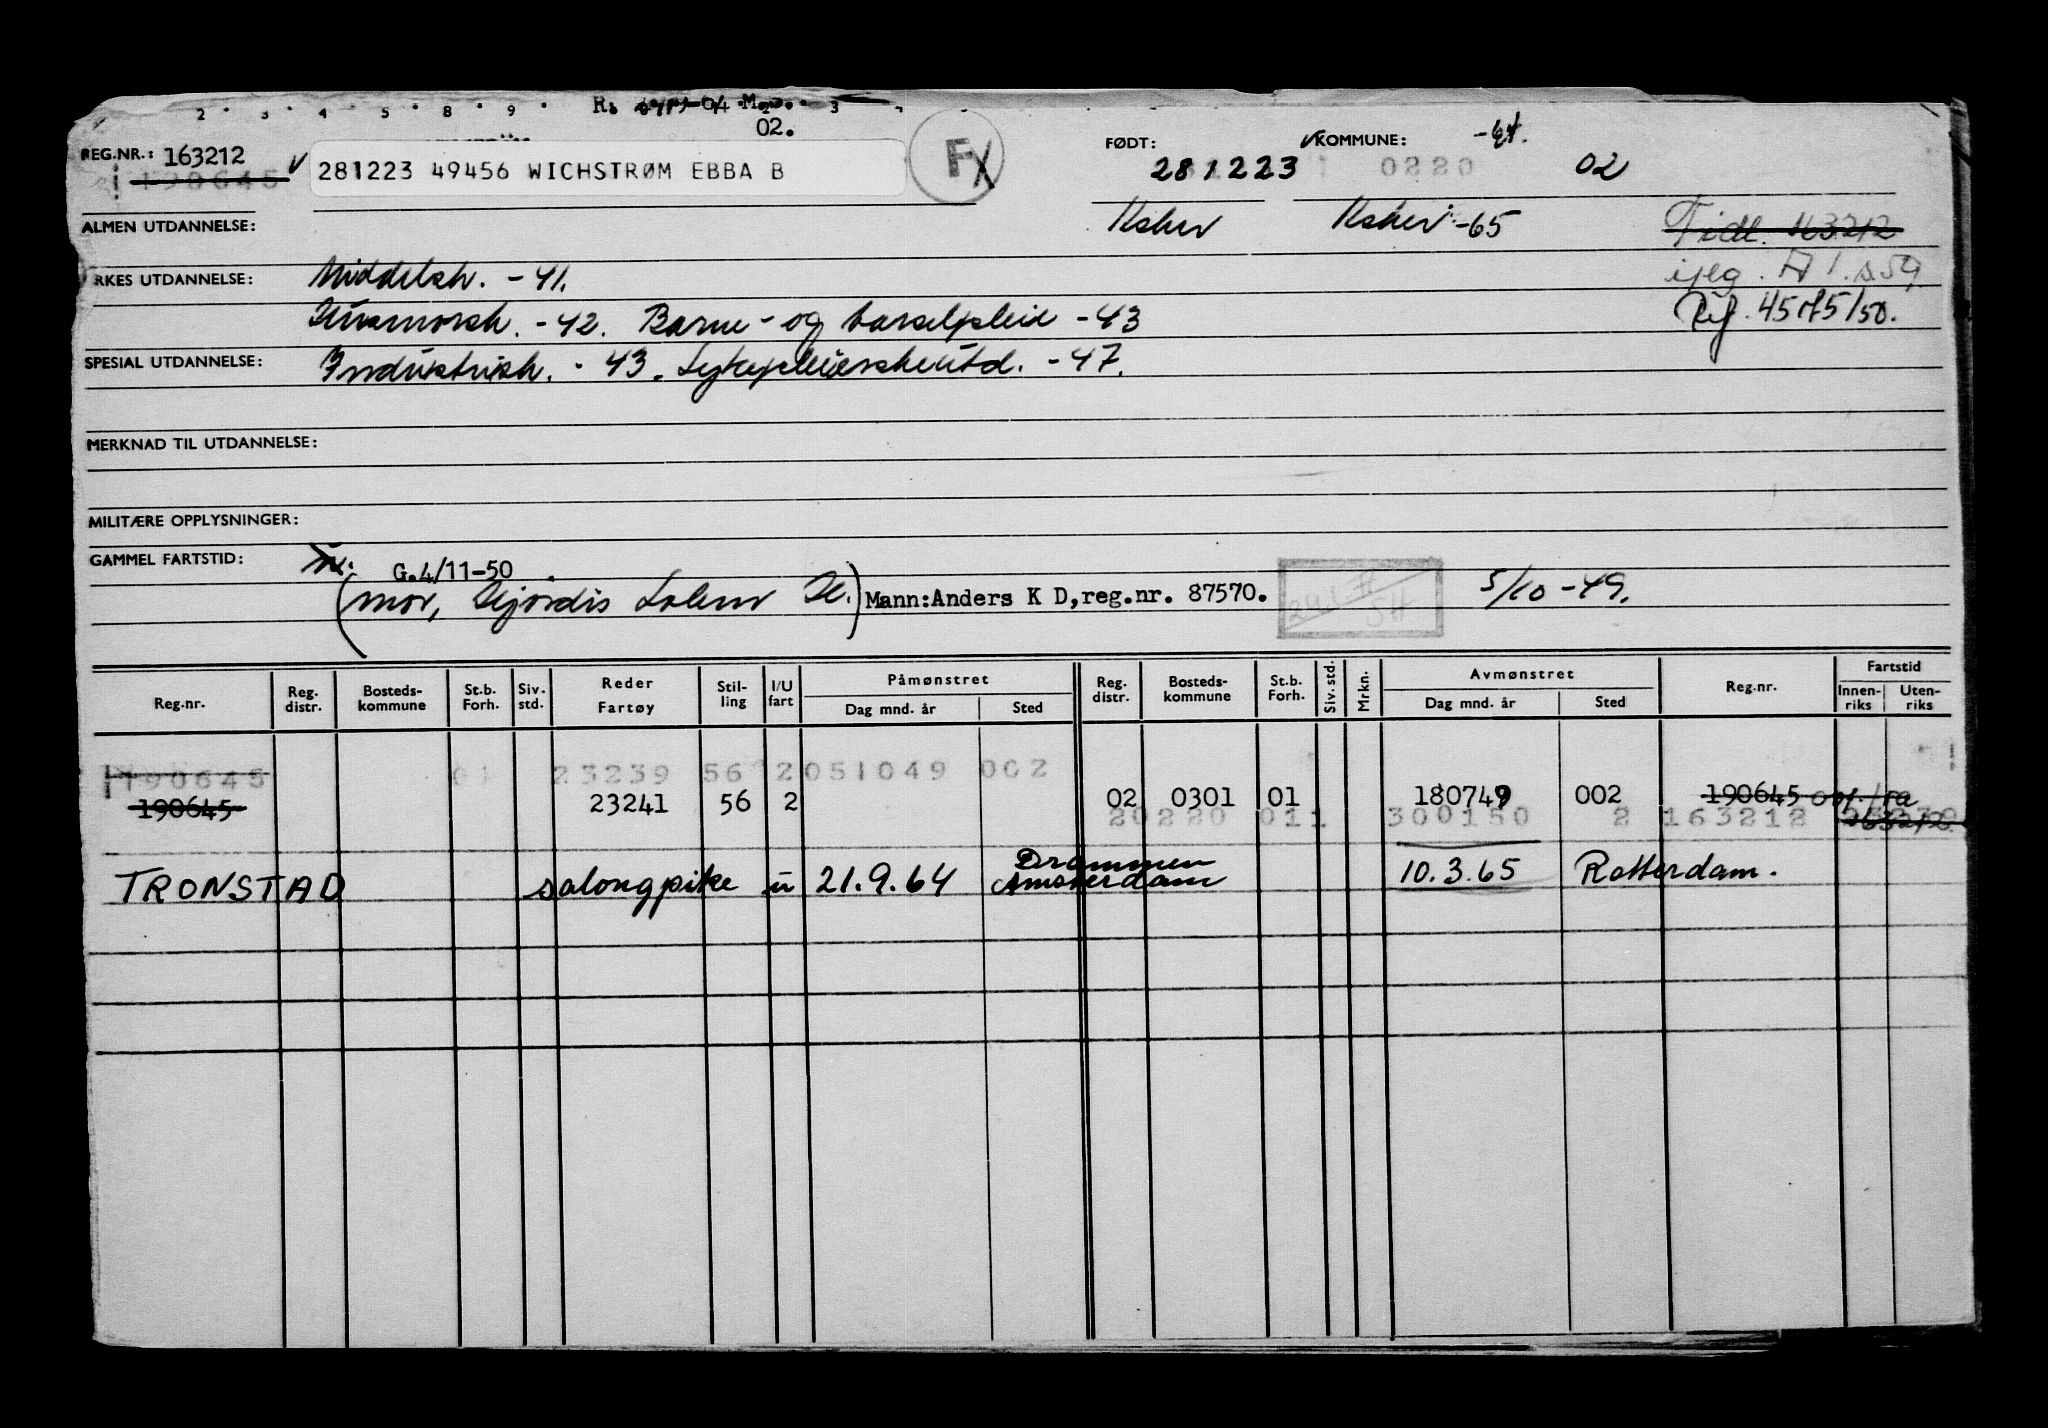 2 . 3 . 4 . 5 . 8 . 9 . R. -04 3
02.
REG.NR.: 163212
190645
281223 49456 WICHSTRØM EBBA B
F
FØDT:
281223
KOMMUNE:
0220
02
ALMEN UTDANNELSE:
-65
Tidl. 163212
RKES UTDANNELSE: Middelsk. -41.
Husmorsk. -42. Barne- og barselpleie -43
Ref. 4575/50.
SPESIAL UTDANNELSE: Industrisk. -43. Sykepleierskeutd. -47.
MERKNAD TIL UTDANNELSE:
MILITÆRE OPPLYSNINGER:
GAMMEL FARTSTID:
G.4/11-50
(mor, Hjordis Solem H.) Mann:Anders K D,reg.nr. 87570. 5/10 -49.
Reg.nr. Reg. distr. Bosteds- kommune St.b. Forh. Siv. std. Reder Fartøy Stil- ling I/U fart Påmønstret Dag mnd. år Sted Reg. distr. Bosteds- kommune St.b. Forh. Siv. std. Mrkn. Avmønstret Dag mnd. år Sted Reg.nr. Fartstid Innen- riks Uten- riks
190645 23239 56 2 051049 002
190645 23241 56 2 02 0301 01 180749 002 190645
20220 011 300150 2 163212
TRONSTAD salongpike u 21.9.64 Drammen Amsterdam 10.3.65 Rotterdam.